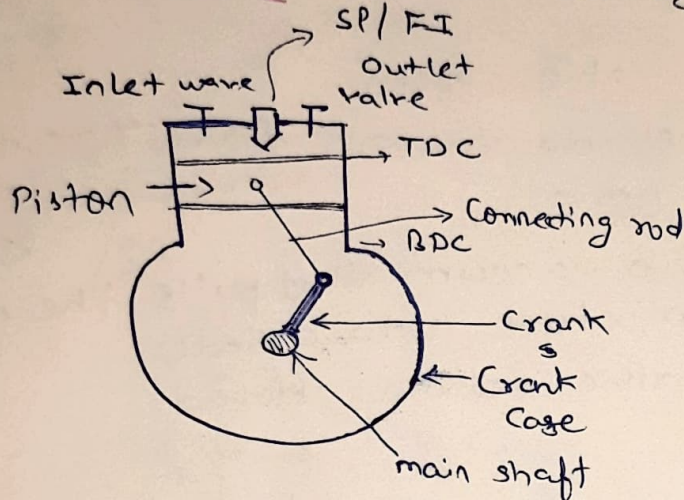 SP/FI
Inlet wave
Outlet
valve
TDC
Piston
Connecting rod
BDC
Crank
s
Crank
Case
main shaft